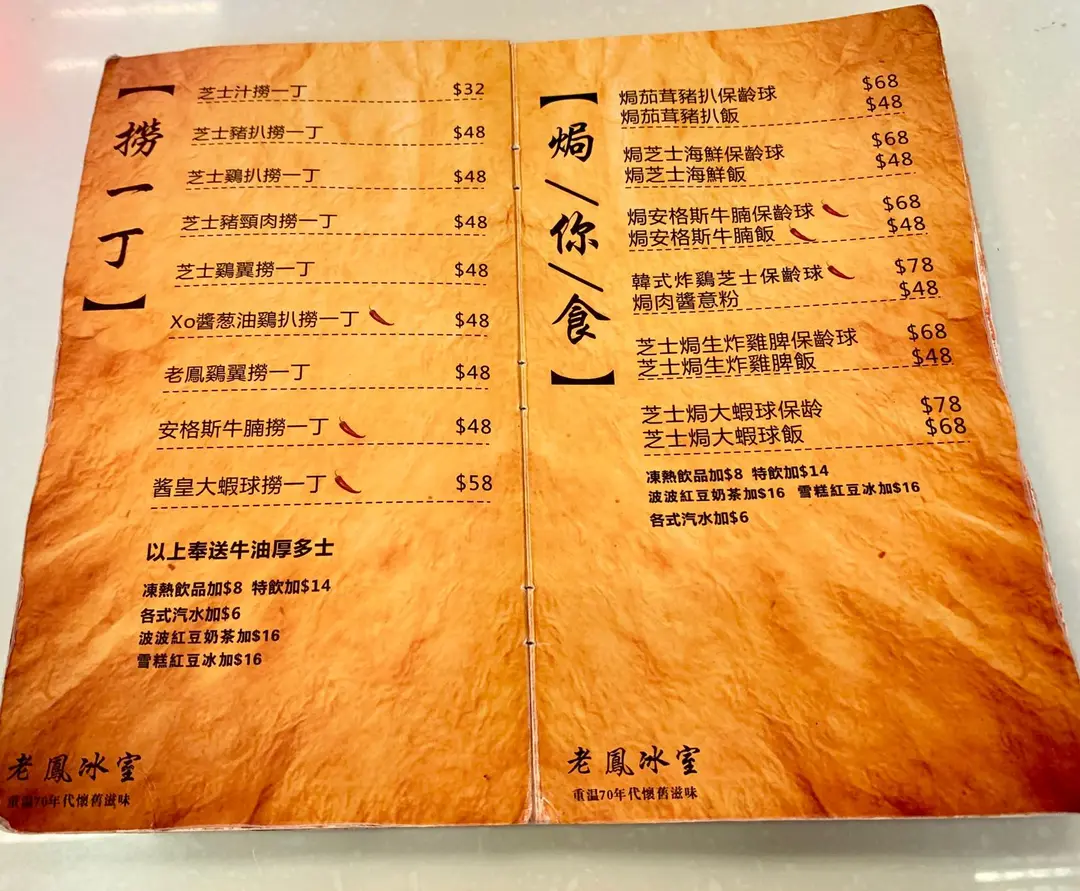 【撈一丁】
芝士汁撈一丁 $32
芝士豬扒撈一丁 $48
芝士鷄扒撈一丁 $48
芝士豬頸肉撈一丁 $48
芝士鷄翼撈一丁 $48
Xo醬葱油鷄扒撈一丁 $48
老鳳鷄翼撈一丁 $48
安格斯牛腩撈一丁 $48
酱皇大蝦球撈一丁 $58
以上奉送牛油厚多士
凍熱飲品加$8 特飲加$14
各式汽水加$6
波波紅豆奶茶加$16
雪糕紅豆冰加$16
老鳳冰室
重温70年代懷舊滋味
【焗/你/食】
焗茄茸豬扒保齡球 $68
焗茄茸豬扒飯 $48
焗芝士海鮮保齡球 $68
焗芝士海鮮飯 $48
焗安格斯牛腩保齡球 $68
焗安格斯牛腩飯 $48
韓式炸鷄芝士保齡球 $78
焗肉醬意粉 $48
芝士焗生炸雞脾保齡球 $68
芝士焗生炸雞脾飯 $48
芝士焗大蝦球保龄 $78
芝士焗大蝦球飯 $68
凍熱飲品加$8 特飲加$14
波波紅豆奶茶加$16 雪糕紅豆冰加$16
各式汽水加$6
老鳳冰室
重温70年代懷舊滋味